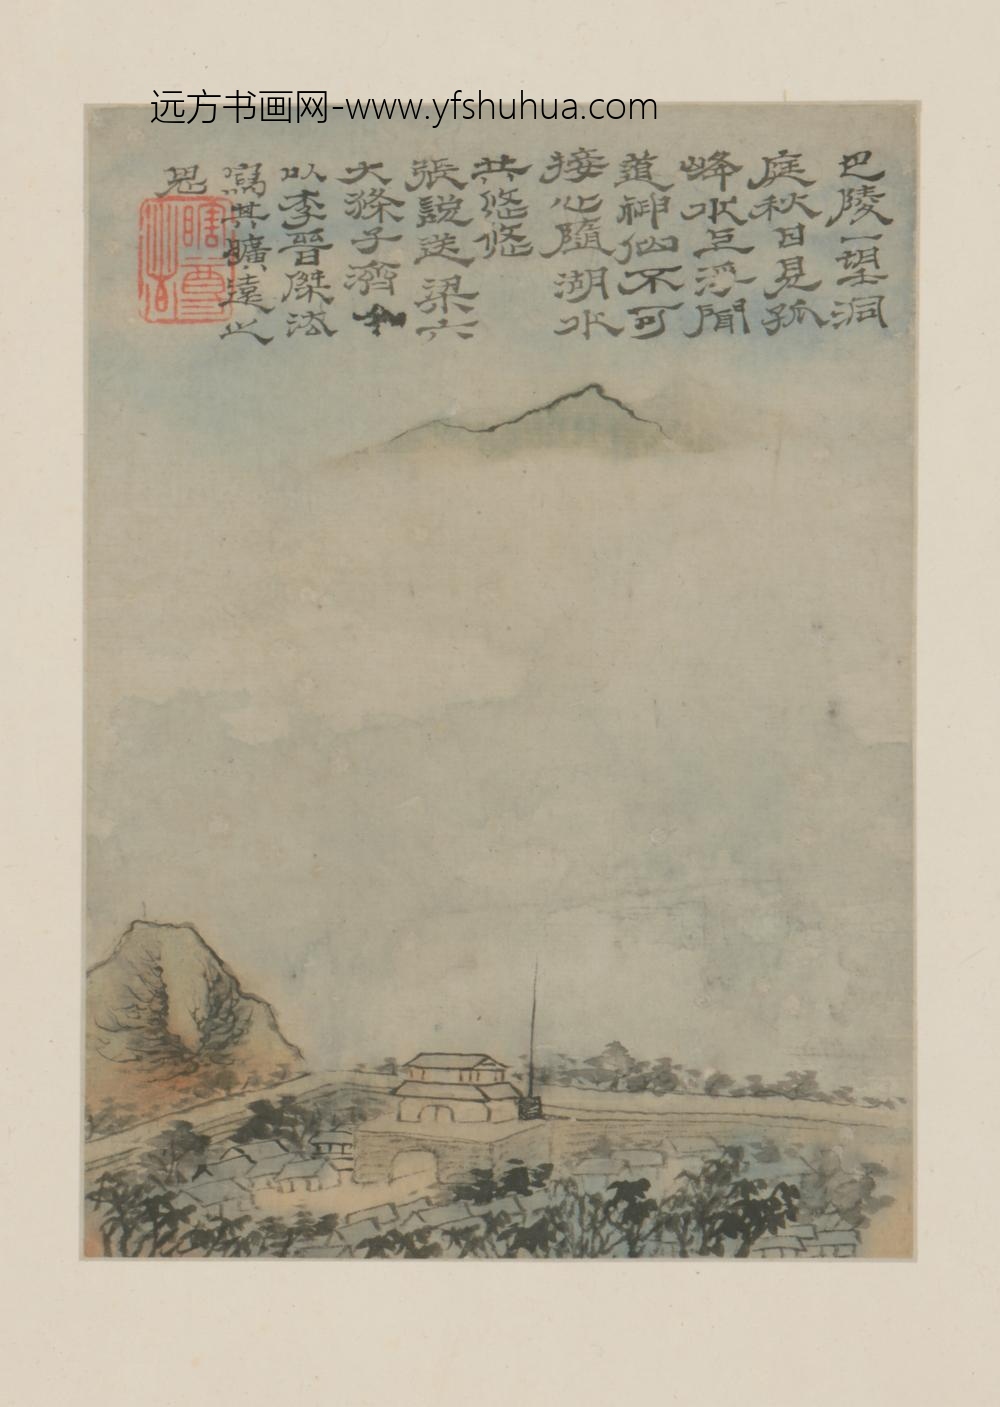 远方书画网-www.yfshuhua.com
巴陵一望洞
庭秋日見孤
峰水上浮聞
道神仙不可
接心隨湖水
共悠悠
張說送梁六
大滌子濟
以李晞傑法
寫其曠遠之
思
瞎尊